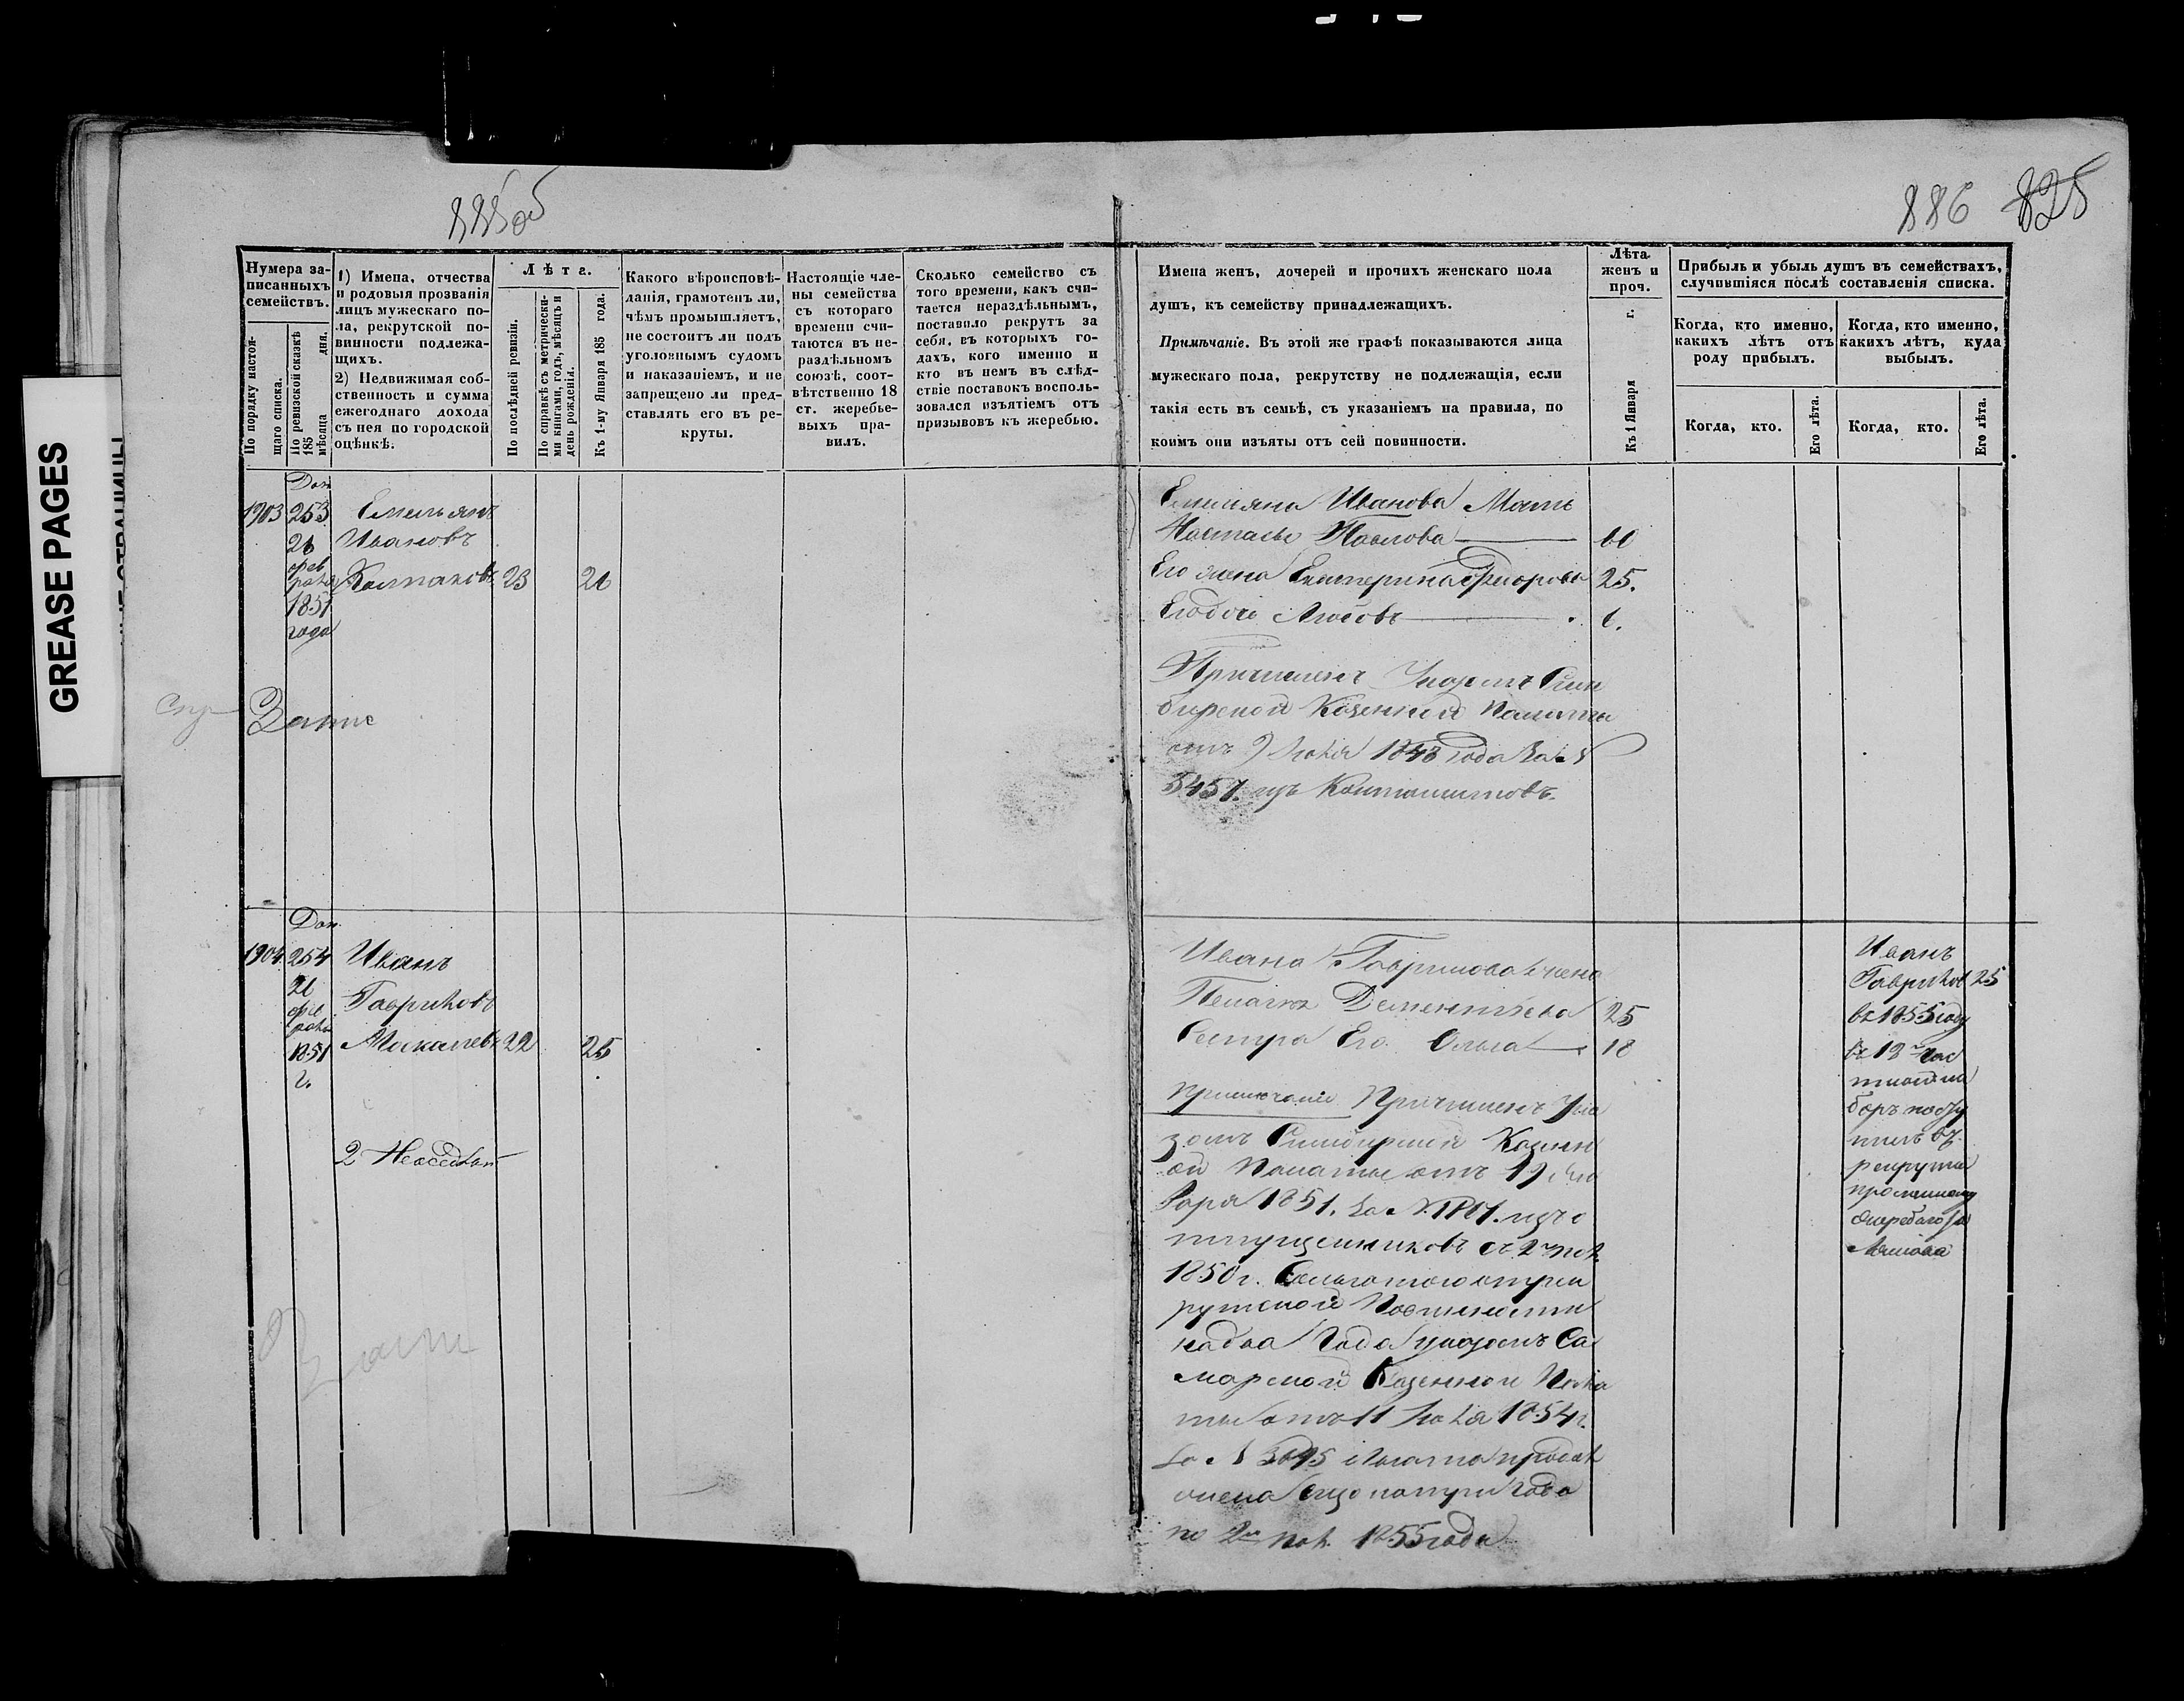 GREASE PAGES
886 825
Нумера за-
писанныхъ
семействъ.
По порядку настоя-
щаго списка.
По ревизской сказкѣ
185 мѣсяца дня.
1) Имена, отчества
и родовыя прозванія
лицъ мужескаго по-
ла, рекрутской по-
винности подлежа-
щихъ.
2) Недвижимая соб-
ственность и сумма
ежегоднаго дохода
съ нея по городской
оцѣнкѣ.
Лѣта.
По послѣдней ревизіи.
По справкѣ съ метрически-
ми книгами, годъ, мѣсяцъ и
день рожденія.
Къ 1-му Января 185 года.
Какого вѣроисповѣ-
данія, грамотенъ ли,
чѣмъ промышляетъ,
не состоитъ ли подъ
уголовнымъ судомъ
и наказаніемъ, и не
запрещено ли пред-
ставлять его въ ре-
круты.
Настоящіе чле-
ны семейства
съ котораго
времени счи-
таются въ не-
раздѣльномъ
союзѣ, соот-
вѣтственно 18
ст. жеребье-
выхъ пра-
вилъ.
Сколько семейство съ
того времени, какъ счи-
тается нераздѣльнымъ,
поставило рекрутъ за
себя, въ которыхъ го-
дахъ, кого именно и
кто въ немъ въ слѣд-
ствіе поставокъ восполь-
зовался изъятіемъ отъ
призывовъ къ жеребью.
Имена женъ, дочерей и прочихъ женскаго пола
душъ, къ семейству принадлежащихъ.
Примѣчаніе. Въ этой же графѣ показываются лица
мужескаго пола, рекрутству не подлежащія, если
такія есть въ семьѣ, съ указаніемъ на правила, по
коимъ они изъяты отъ сей повинности.
Лѣта
женъ и
проч.
Къ 1 Января г.
Прибыль и убыль душъ въ семействахъ,
случившіяся послѣ составленія списка.
Когда, кто именно,
какихъ лѣтъ отъ
роду прибылъ.
Когда, кто именно,
какихъ лѣтъ, куда
выбылъ.
Когда, кто.
Его лѣта.
Когда, кто.
Его лѣта.
Доп
1903 253 Емельянъ
Ивановъ
фев
раля Колпаковъ 23
1851
года
Емельяна Иванова Мать
Настасья Павлова
Его жена Екатерина Федорова 25.
Его дочь Любовь
Причисленъ Указомъ Сим
бирской Казенной Палаты
отъ 9 Іюля 1848 года За №
5457. изъ Кантонистовъ.
Доп.
1904 254 Иванъ
Гавриловъ
1851 22 25
г.
2 Неоседлой
Ивана Гаврилова жена
Пелагея Дементьева 25
Сестра Его Ольга 18
Примечаніе Причисленъ Ука
зомъ Симбирской Казенн
ой Палаты отъ 19 Ян
варя 1851. За № изъ о
тпущенниковъ съ 2й пол.
1850 г. Сельготою отъ рек
рутской Повинности
на два Года указомъ Са
марской Казенной Пала
ты отъ 11 Іюля 1854 г.
За № 3095 льгота продол
жена еще на три года
по 2ю пол. 1855 года
Иванъ
Гавриловъ 25
въ 1855 году
въ 12й час
тной на
боръ посту
пилъ въ
рекруты